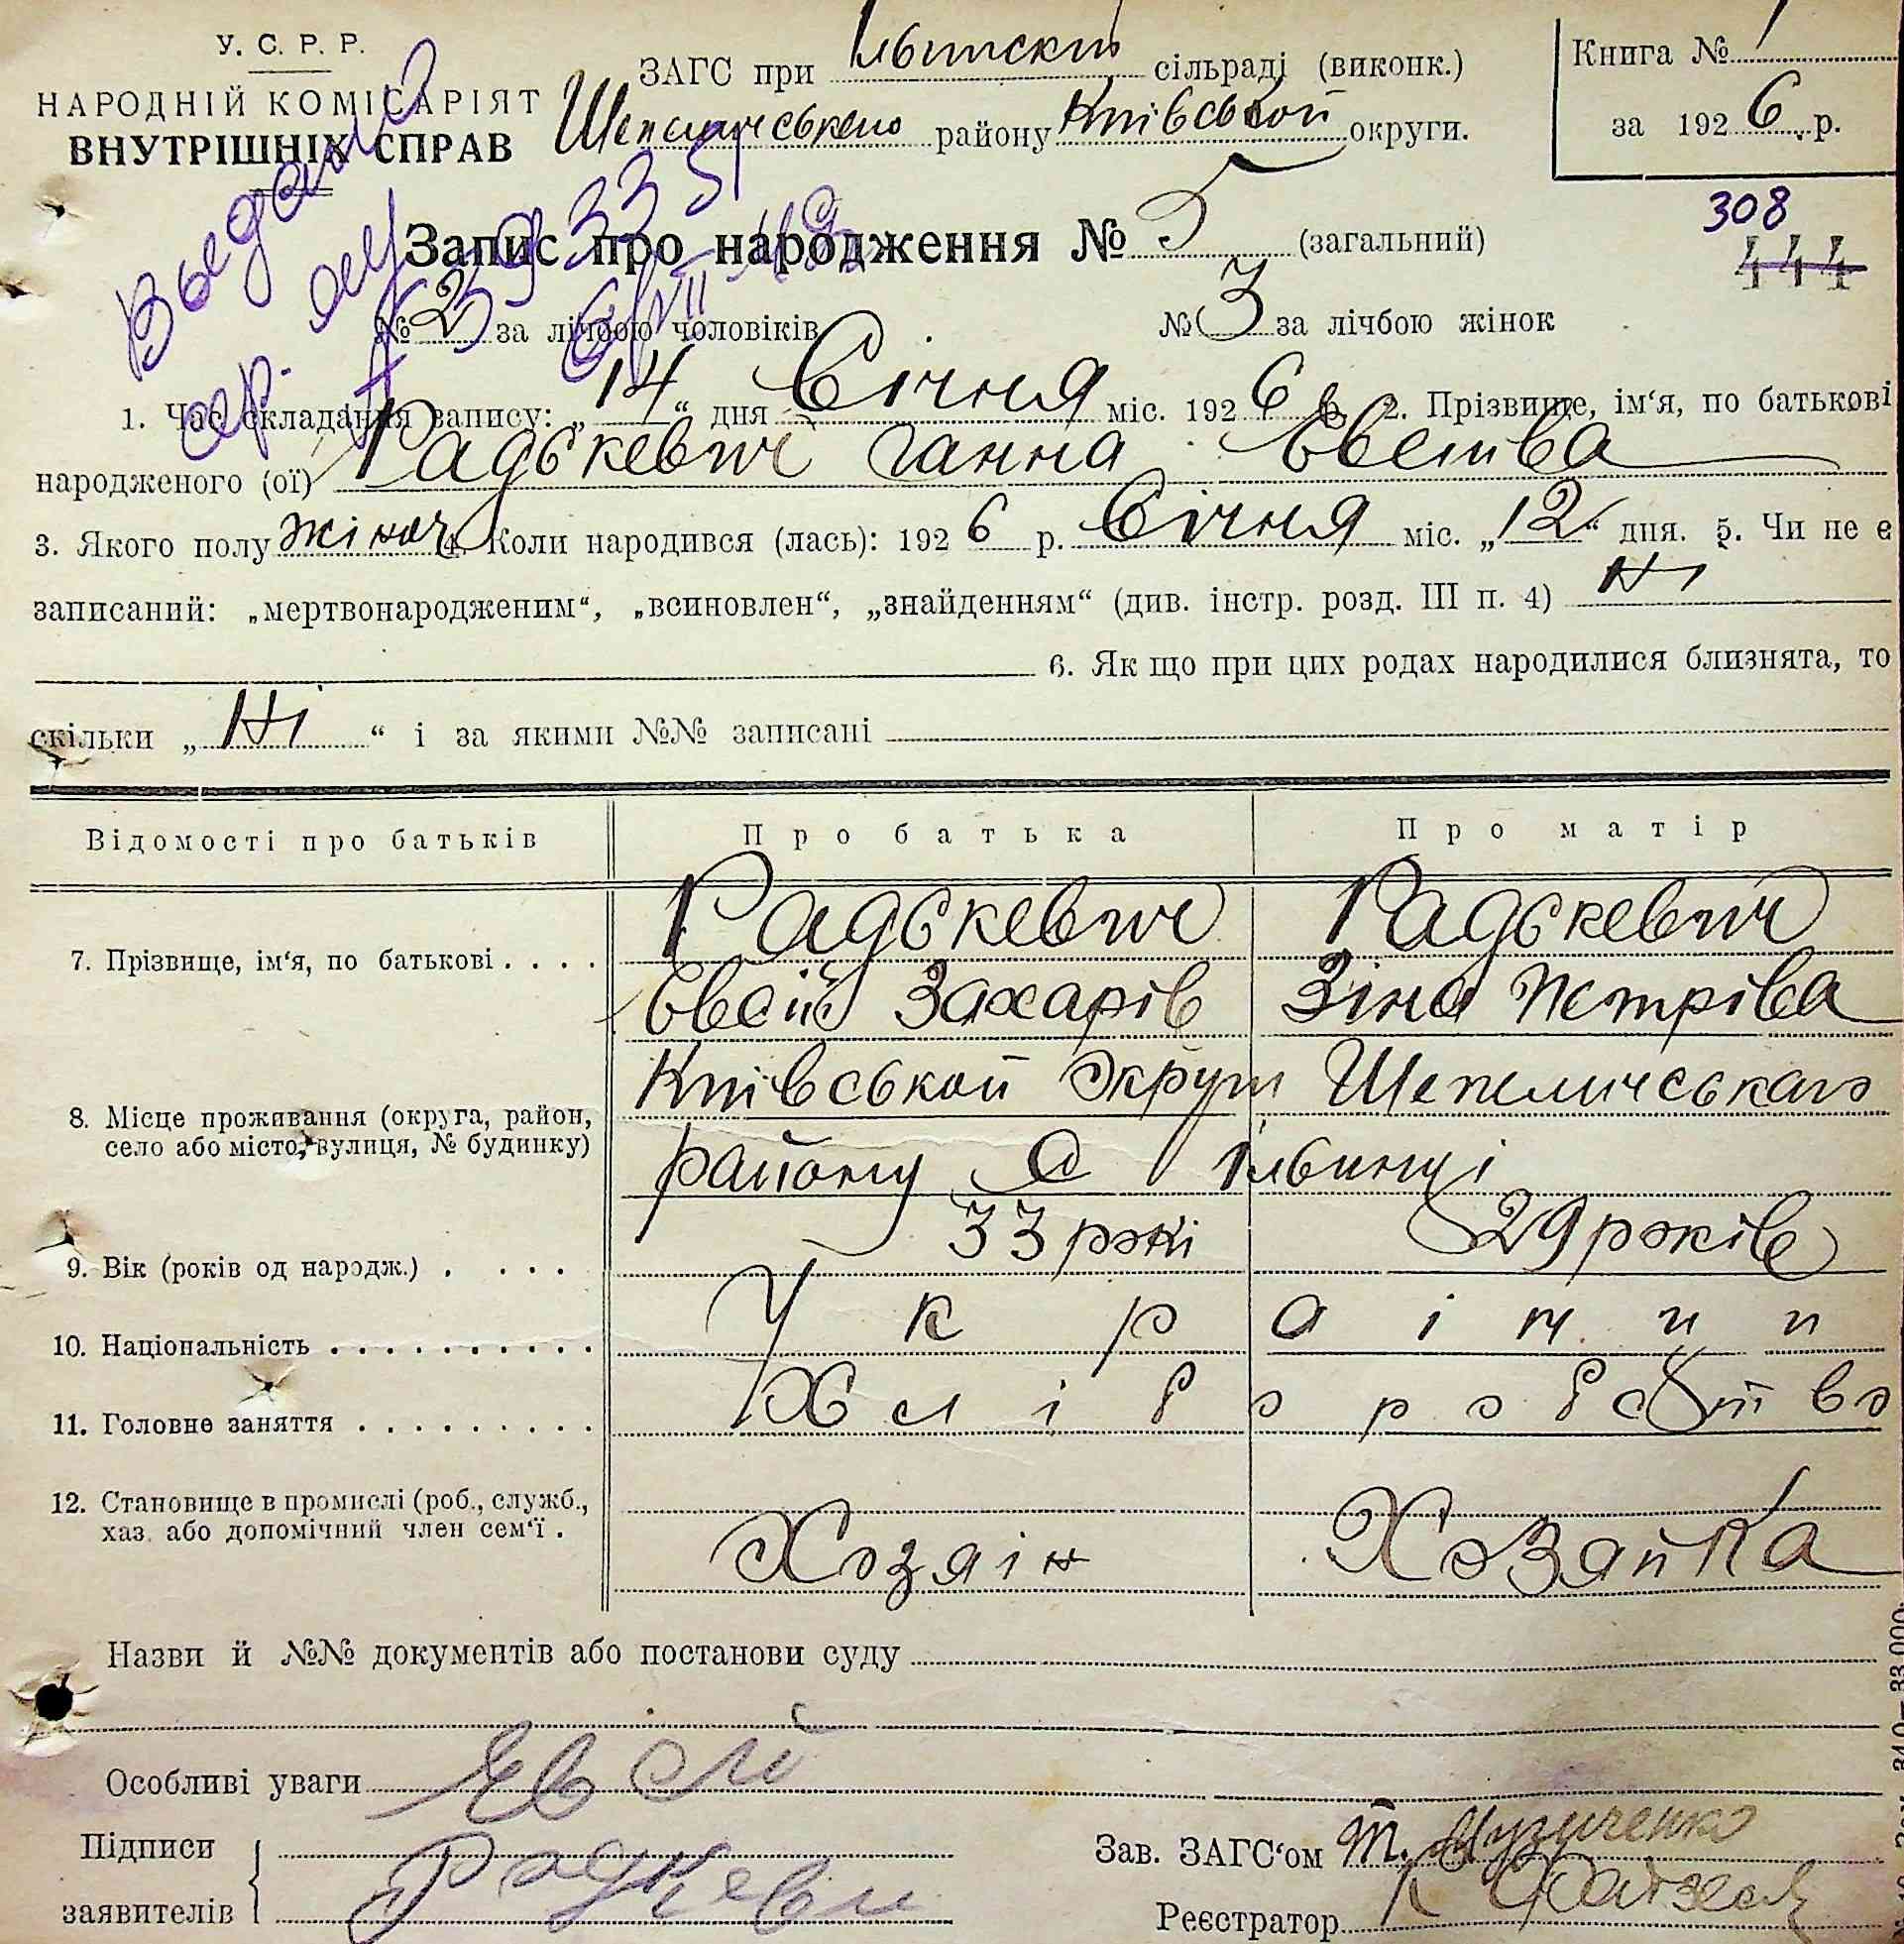 У. С. Р. Р.
НАРОДНІЙ КОМІСАРІЯТ
ВНУТРІШНІХ СПРАВ
ЗАГС при сільраді (виконк.)
району Київської округи.
Книга № 1
за 1926 р.
308
444
Запис про народження № 5 (загальний)
№ 2 за лічбою чоловіків № 3 за лічбою жінок
1. Час складання запису: „14“ дня Січня міс. 1926 р. 2. Прізвище, ім‘я, по батькові
народженого (ої) Радькевич Ганна
3. Якого полу жіноч 4. Коли народився (лась): 1926 р. Січня міс. „12“ дня. 5. Чи не є
записаний: „мертвонародженим“, „всиновлен“, „знайденням“ (див. інстр. розд. III п. 4) Ні
6. Як що при цих родах народилися близнята, то
скільки „Ні“ і за якими №№ записані
Відомості про батьків Про батька Про матір
7. Прізвище, ім‘я, по батькові . . . . Радькевич Радькевич
Захарів Зіна Петрівa
8. Місце проживання (округа, район, Київської Округи Шепелическаго
село або місто, вулиця, № будинку) району С
9. Вік (років од народж.) . . . . 33 рокі 29 років
10. Національність . . . . . . . . . . . Українци
11. Головне заняття . . . . . . . . . . Хліборобство
12. Становище в промислі (роб., служб.,
хаз. або допомічний член сем‘ї . Хозяін Хозяйка
Назви й №№ документів або постанови суду
Особливі уваги
Підписи
заявителів
Зав. ЗАГС‘ом
Реєстратор